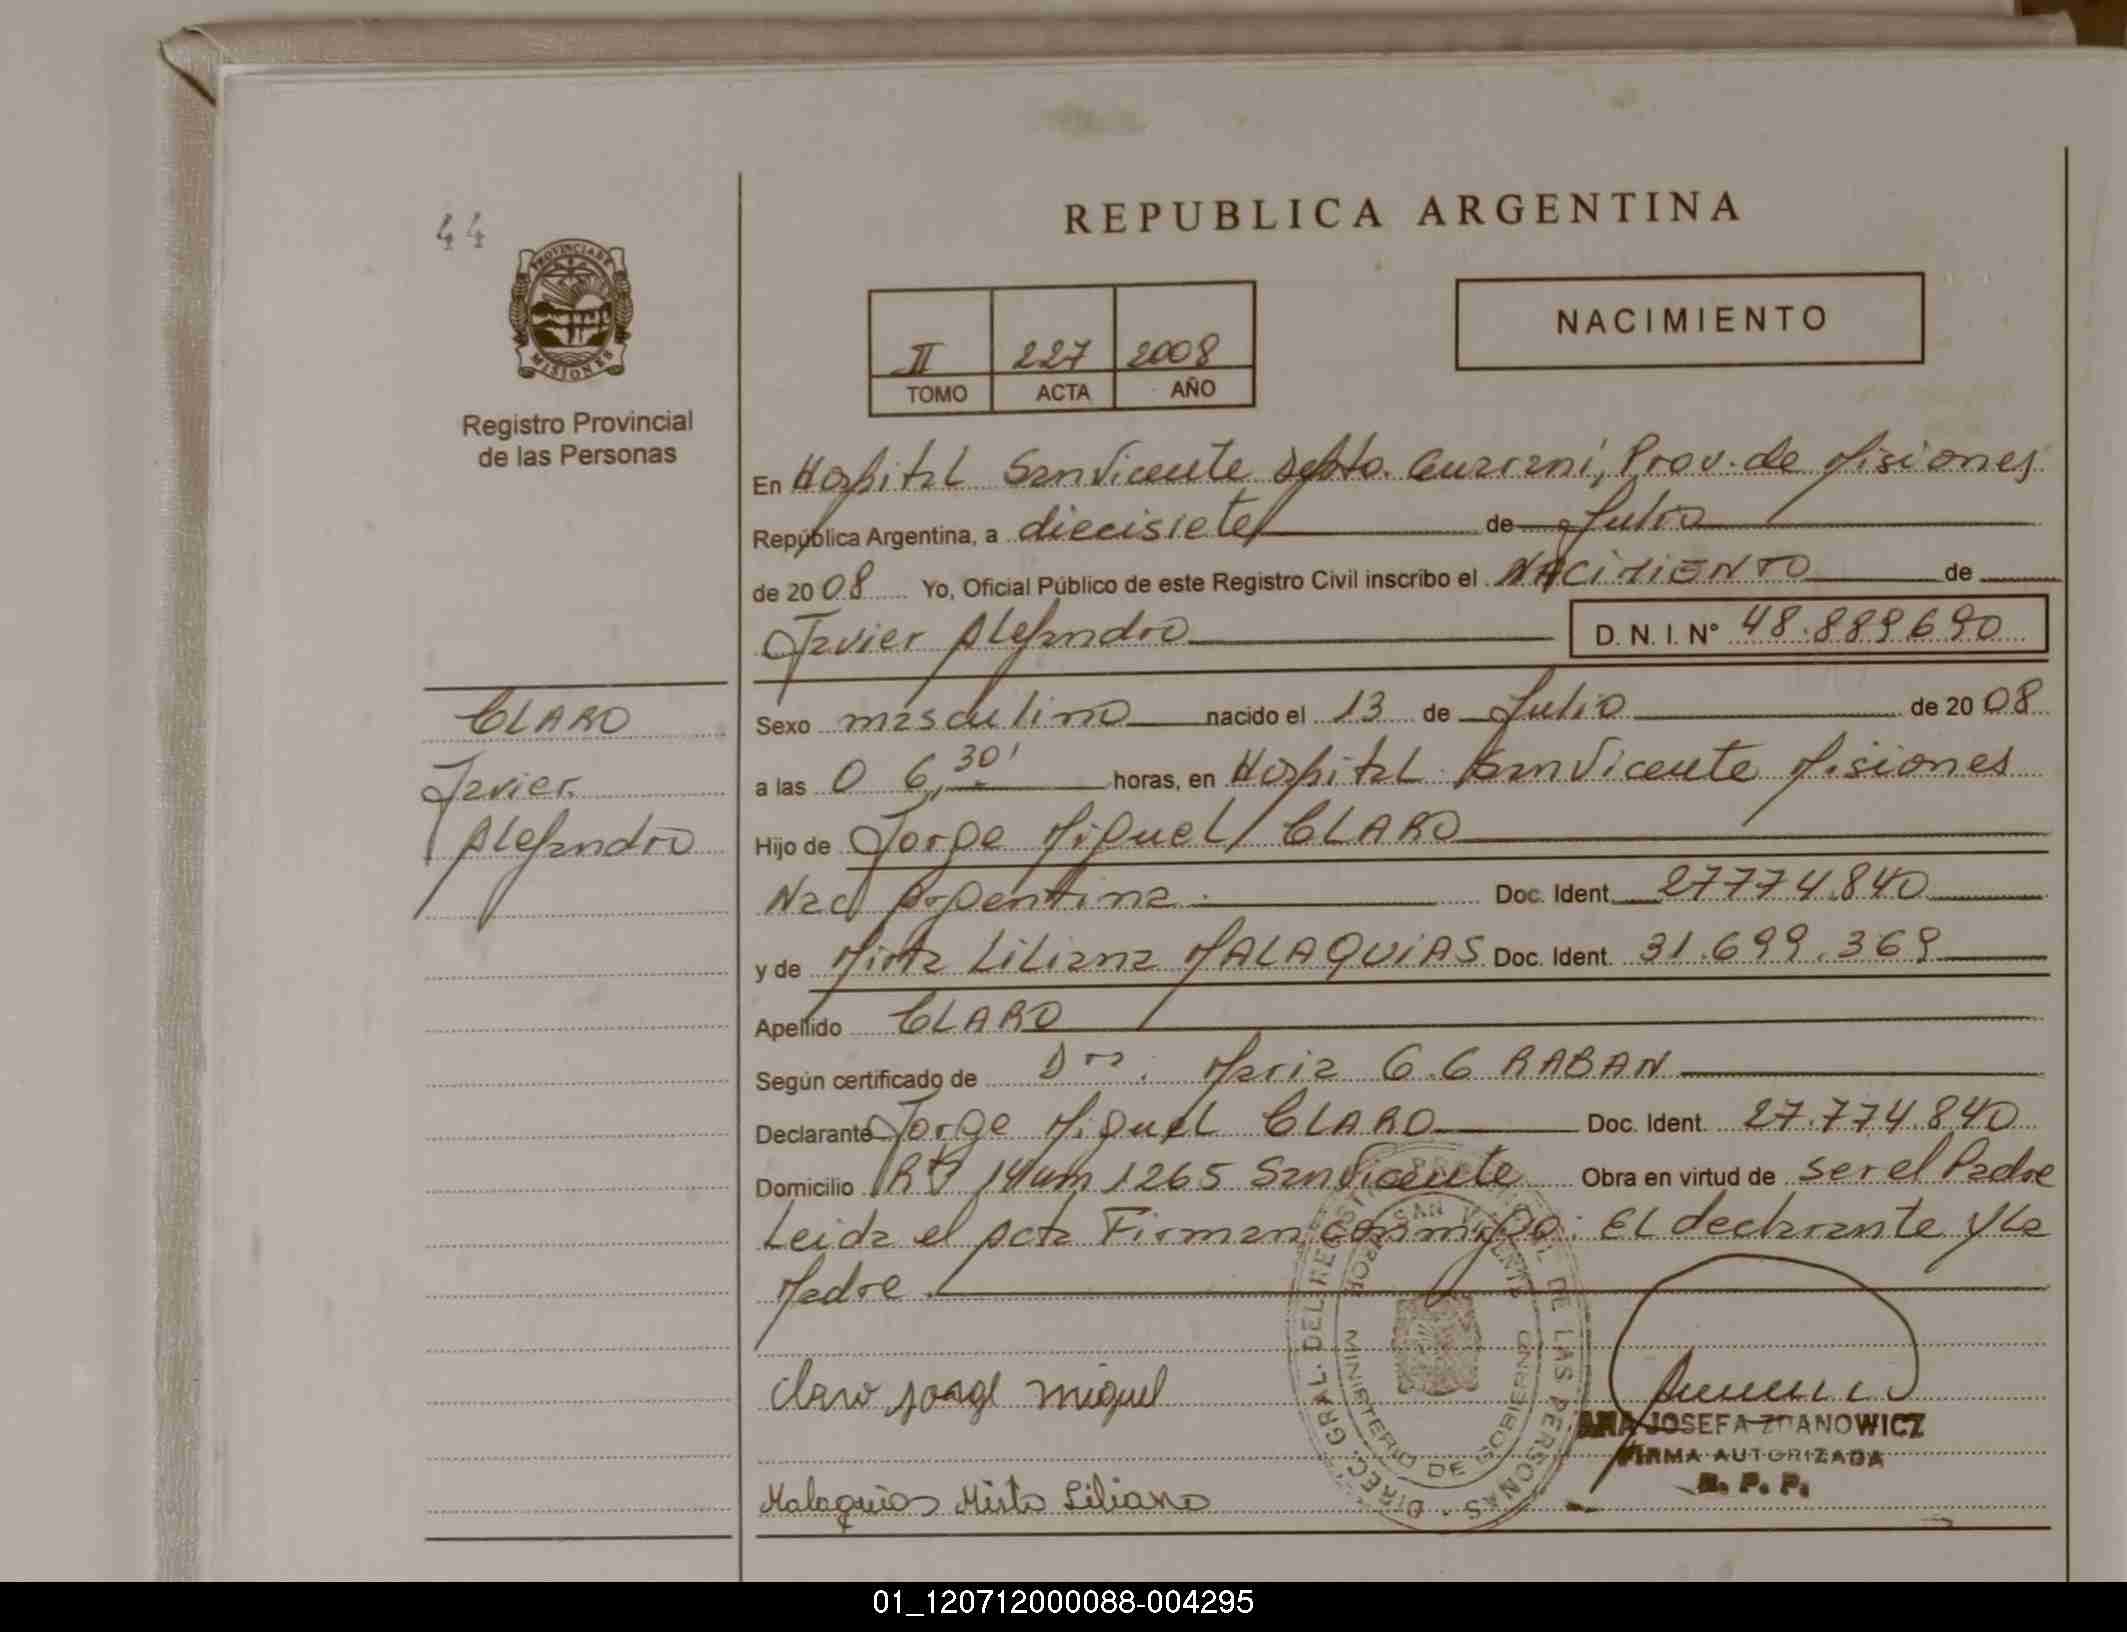 44
PROVINCIA DE
MISIONES
Registro Provincial
de las Personas
REPUBLICA ARGENTINA
II 227 2008
TOMO ACTA AÑO
NACIMIENTO
En Hospital San Vicente Dpto. Guarani, Prov. de Misiones
República Argentina, a diecisiete de Julio
de 2008 Yo, Oficial Público de este Registro Civil inscribo el NACIMIENTO de
Javier Alejandro D. N. I. N° 48.889690
CLARO
Javier
Alejandro
Sexo masculino nacido el 13 de Julio de 2008
a las 0 6,30' horas, en Hospital San Vicente Misiones
Hijo de Jorge Miguel CLARO
Nac Argentina. Doc. Ident. 27774.840
y de Mirta Liliana MALAQUIAS Doc. Ident. 31.699.369
Apellido CLARO
Según certificado de Dra. Maria G.G RABAN
Declarante Jorge Miguel CLARO Doc. Ident. 27.774.840
Domicilio Rta 14 km 1265 San Vicente Obra en virtud de ser el Padre
Leida el Acta Firman conmigo: El declarante y La
Madre.
Claro Jorge Miguel
Malaquias Mirta Liliana
DIREC. GRAL. DEL REGISTRO PROVINCIAL DE LAS PERSONAS
MINISTERIO DE GOBIERNO
ANA JOSEFA ZDANOWICZ
FIRMA AUTORIZADA
R. P. P.
01_120712000088-004295